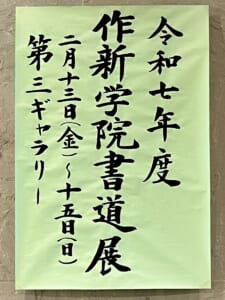 令和七年度
作新学院書道展
二月十三日(金)~十五日(日)
第三ギャラリー